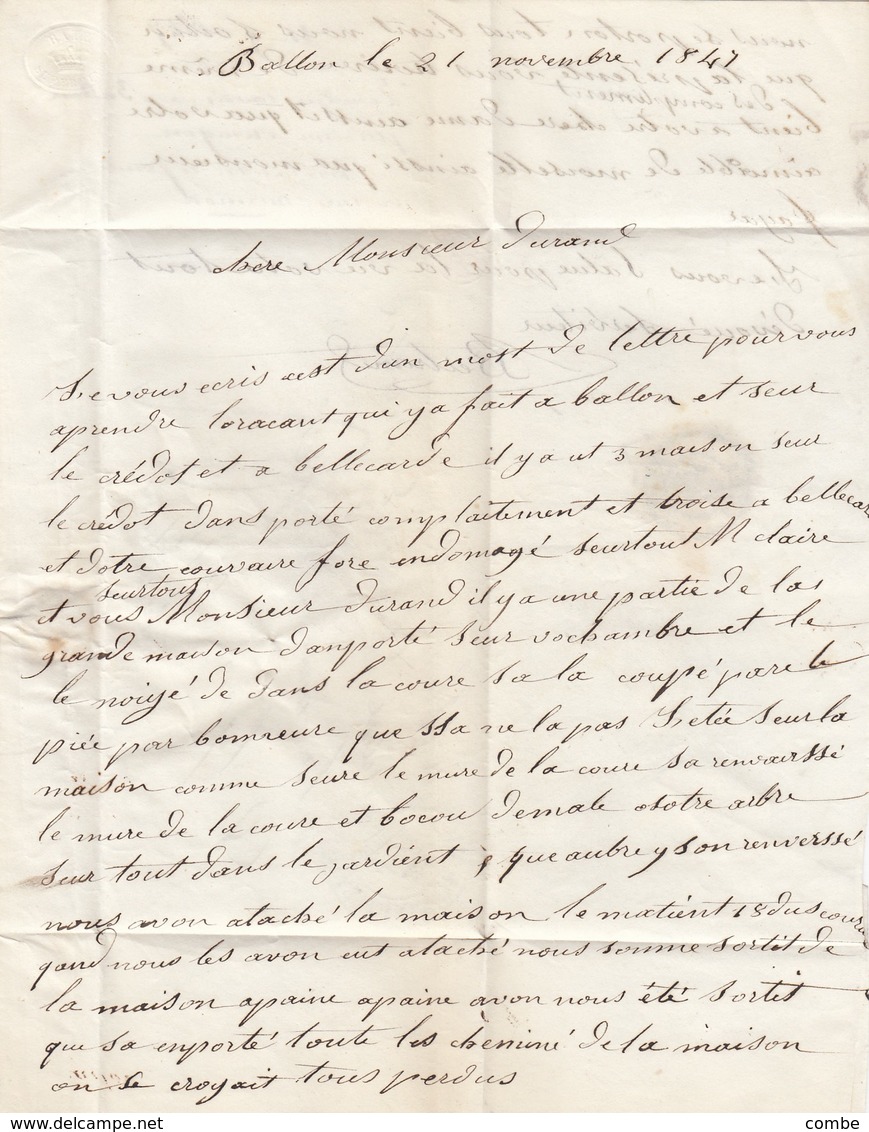 Ballon le 21 novembre 1847
chere Monsieur durand
Je vous ecris cest dun most de lettre pour vous
aprendre loracant qui ya fait a ballon et seur
le crédot et a bellecarde il ya ut 3 maison seur
le crédot dans porté complaitement et troise a bellecar
et dotre couvaire fore endomagé seurtout M claire
seurtous
et vous Monsieur durand il ya une partie de las
grande maison danporté seur vochambre et le
le noiyé de dans la coure sa la coupé pare le
piée par bonneure que ssa ne la pas Jetée seur la
maison comme seure le mure de la coure sa renvairssé
le mure de la coure et bocou demale a sotre arbre
seur tout dans le jardient que aubre y son renverssé
nous avon ataché la maison le matient 18 dus coura
qand nous les avon eut ataché nous somme sortit de
la maison apaine apaine avon nous été sortit
que sa enporté toute les cheminé de la maison
on se croyait tous perdus
combe